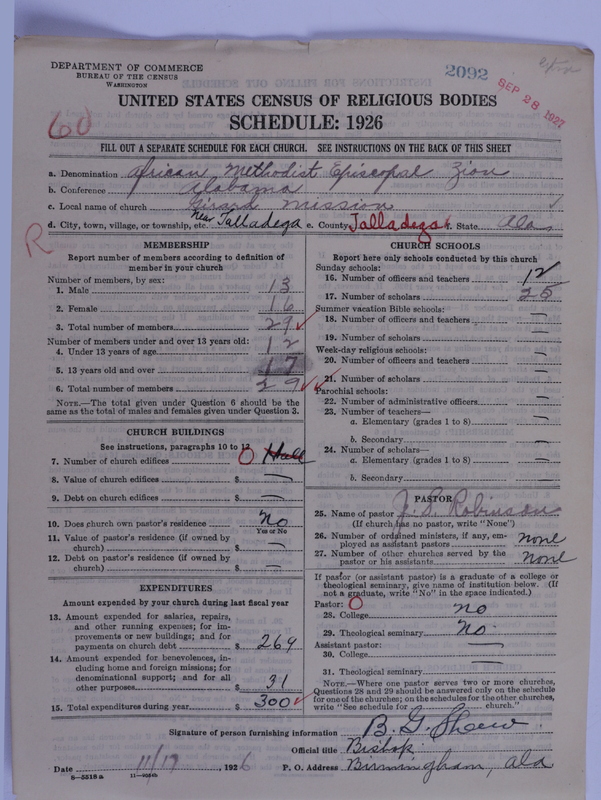 DEPARTMENT OF COMMERCE
BUREAU OF THE CENSUS
WASHINGTON
2092
SEP 28 1927
60
UNITED STATES CENSUS OF RELIGIOUS BODIES
SCHEDULE: 1926
FILL OUT A SEPARATE SCHEDULE FOR EACH CHURCH. SEE INSTRUCTIONS ON THE BACK OF THIS SHEET
a. Denomination African Methodist Episcopal Zion
b. Conference Alabama
c. Local name of church Girard Mission
d. City, town, village, or township, etc. Near Talladega e. County Talladega f. State Ala
R
MEMBERSHIP
Report number of members according to definition of
member in your church
Number of members, by sex:
1. Male 13
2. Female 16
3. Total number of members 29
Number of members under and over 13 years old:
4. Under 13 years of age 12
5. 13 years old and over 17
6. Total number of members 29
NOTE.—The total given under Question 6 should be the
same as the total of males and females given under Question 3.
CHURCH BUILDINGS
See instructions, paragraphs 10 to 12
7. Number of church edifices 0 Hall
8. Value of church edifices $ —
9. Debt on church edifices $ —
10. Does church own pastor's residence No
Yes or No
11. Value of pastor's residence (if owned by
church) $ —
12. Debt on pastor's residence (if owned by
church) $ —
EXPENDITURES
Amount expended by your church during last fiscal year
13. Amount expended for salaries, repairs,
and other running expenses; for im-
provements or new buildings; and for
payments on church debt $ 269
14. Amount expended for benevolences, in-
cluding home and foreign missions; for
denominational support; and for all
other purposes $ 31
15. Total expenditures during year $ 300
CHURCH SCHOOLS
Report here only schools conducted by this church
Sunday schools:
16. Number of officers and teachers 12
17. Number of scholars 25
Summer vacation Bible schools:
18. Number of officers and teachers —
19. Number of scholars —
Week-day religious schools:
20. Number of officers and teachers —
21. Number of scholars —
Parochial schools:
22. Number of administrative officers —
23. Number of teachers—
a. Elementary (grades 1 to 8) —
b. Secondary —
24. Number of scholars—
a. Elementary (grades 1 to 8) —
b. Secondary —
PASTOR
25. Name of pastor J. S. Robinson
(If church has no pastor, write "None")
26. Number of ordained ministers, if any, em-
ployed as assistant pastors none
27. Number of other churches served by the
pastor or his assistants none
If pastor (or assistant pastor) is a graduate of a college or
theological seminary, give name of institution below. (If
not a graduate, write "No" in the space indicated.)
Pastor: 0
28. College no
29. Theological seminary No
Assistant pastor:
30. College —
31. Theological seminary
NOTE.—Where one pastor serves two or more churches,
Questions 28 and 29 should be answered only on the schedule
for one of the churches; on the schedules for the other churches,
write "See schedule for church."
Signature of person furnishing information B. G. Shaw
Official title Bishop
Date 11/17, 1926 P. O. Address Birmingham, Ala
8-5518a